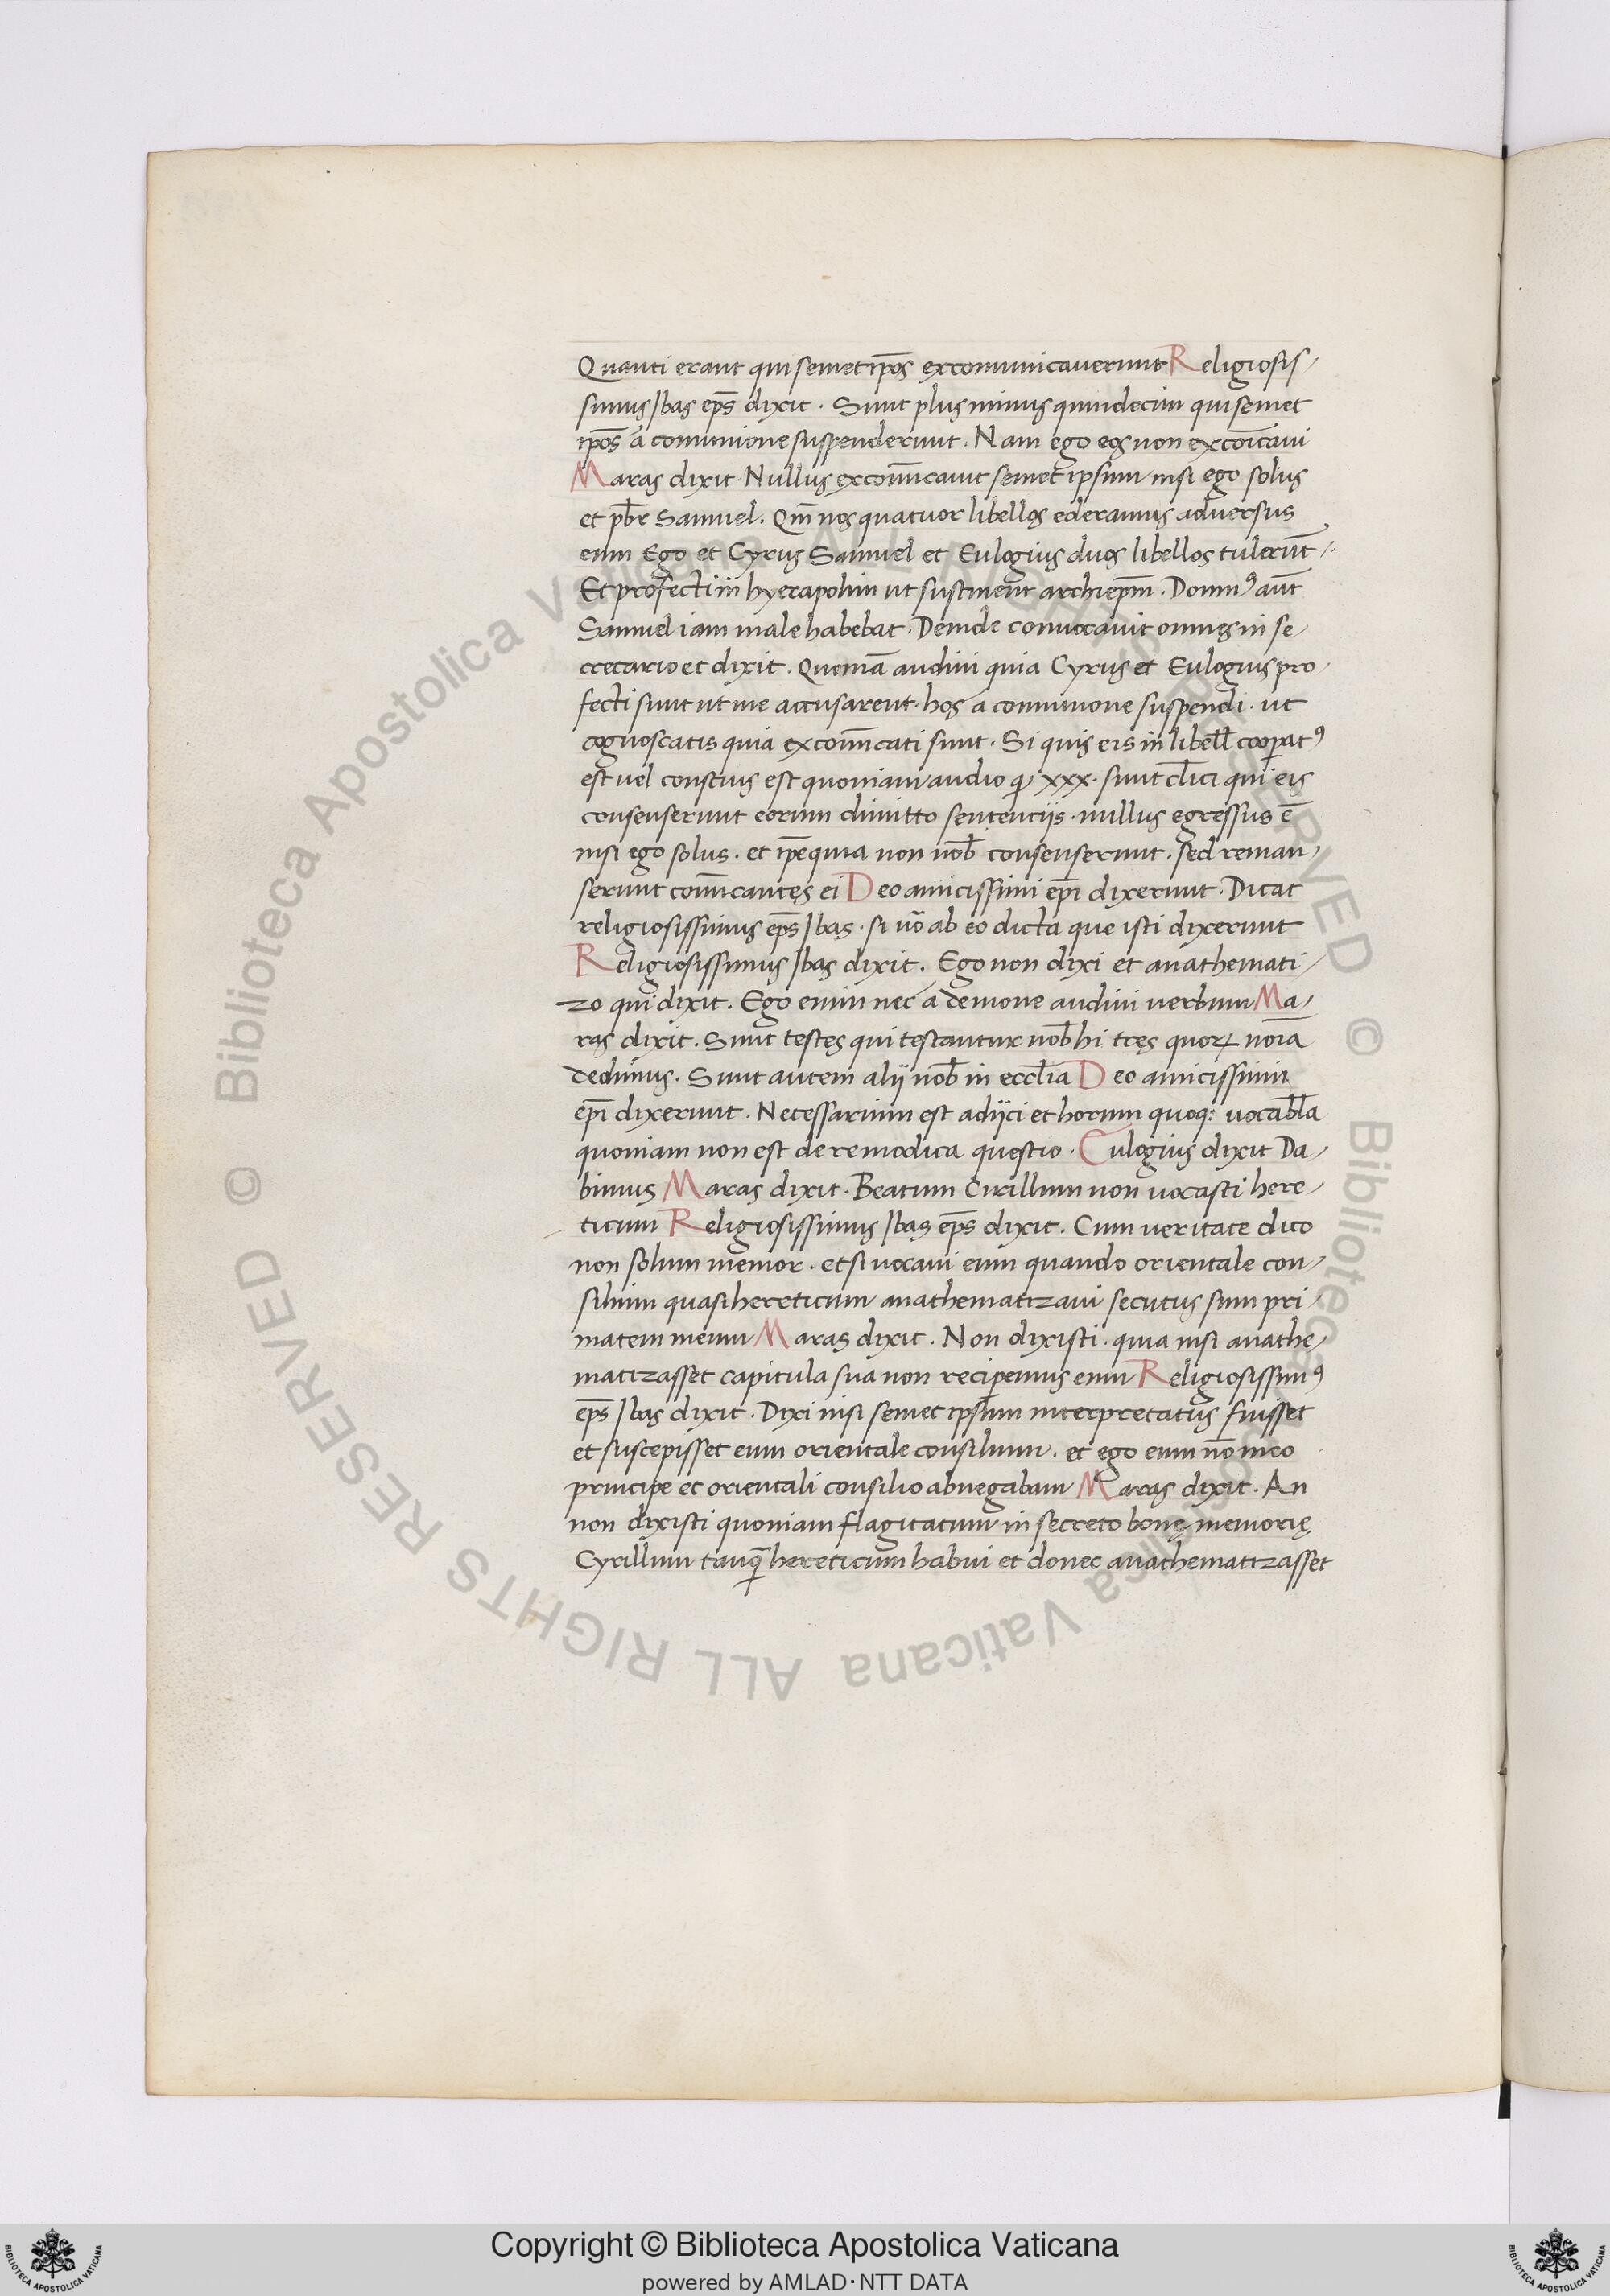 Quanti erant qui semet ip̄os excomunicauerunt Religiosis/
simus Ibas ep̄s dixit . Sunt plus minus quindecim qui semet
ip̄os a comunione suspenderunt . Nam ego eos non exco͞icaui
Maras dixit . Nullus excom̄unicauit semet ipsum nisi ego solus
et pb̄r Samuel . Qm̄ nos quatuor libellos ederamus aduersus
eum Ego et Cyrus Samuel et Eulogius duos libellos tulerūt /.
Et profecti in hyerapolim ut sustinent archiep̄m . Domnꝰ aūt
Samuel iam male habebat . Deinde conuocauit omnes in se/
cretario et dixit . Quoniā audiui quia Cyrus et Eulogius pro/
fecti sunt ut me accusarent . hos a comunione suspendi . ut
cognoscatis quia excom̄cati sunt . Si quis eis in libell̄ coop̄atꝰ
est uel conscius est quoniam audio ꝙ xxx . sunt cl̄ici qui eis
consenserunt eorum dimitto sentenciis . nullus egressus ē
nisi ego solus . et ip̄e quia non uob̄ consenserunt . sed reman/
serunt com̄cantes ei Deo amicissimi ep̄i dixerunt . Dicat
religiosissimus ep̄s Ibas . si uō ab eo dicta que isti dixerunt
Religiosissimus Ibas dixit . Ego non dixi et anathemati/
zo qui dixit . Ego enim nec a demone audiui uerbum Ma/
ras dixit . Sunt testes qui testantur uob̄ hi tres quoꝝ no͞ia
dedimus . Sunt autem alij nob̄ in eccl̄ia Deo amicissimi
ep̄i dixerunt . Necessarium est adijci et horum quoq: uocabl̄a
quoniam non est de re modica questio . Eulogius dixit Da/
bimus Maras dixit . Beatum Cirillum non uocasti here/
ticum Religiosissimus Ibas ep̄s dixit . Cum ueritate dico
non solum memor . et si uocaui eum quando orientale con/
silium quasi hereticum anathematizaui secutus sum pri/
matem meum Maras dixit . Non dixisti . quia nisi anathe/
matizasset capitula sua non recipemus eum Religiosissimꝰ
ep̄s Ibas dixit . Dixi nisi semet ipsum interpretatus fuisset
et suscepisset eum orientale consilium . et ego eum nō meo
principe et orientali consilio abnegabam Maras dixit . An
non dixisti quoniam flagitatum in secreto bonę memorię
Cyrillum tanq̄ hereticum habui et donec anathematizasset
© Biblioteca Apostolica Vaticana ALL RIGHTS RESERVED © Biblioteca Apostolica Vaticana ALL RIGHTS RESERVED
Copyright © Biblioteca Apostolica Vaticana
powered by AMLAD·NTT DATA
BIBLIOTECA APOSTOLICA VATICANA
BIBLIOTECA APOSTOLICA VATICANA